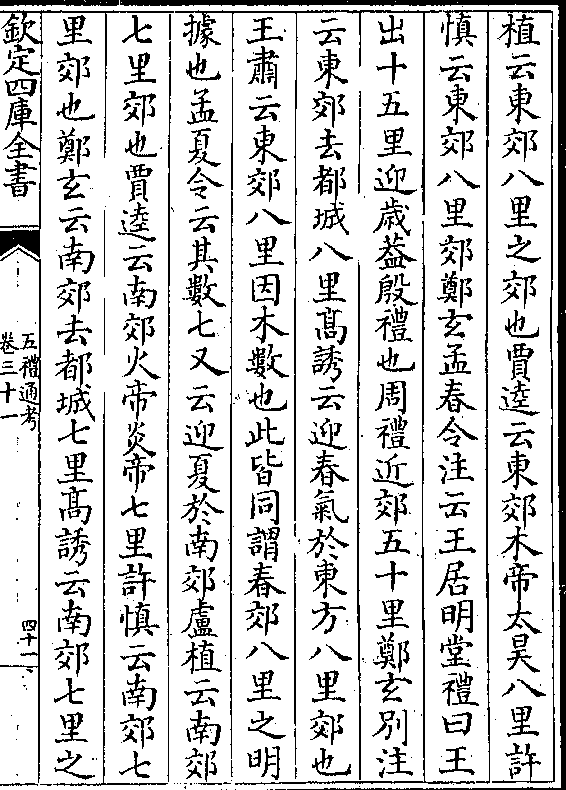 植云東郊八里之郊也賈逵云東郊木帝太昊八里許
慎云東郊八里郊鄭玄孟春令注云王居明堂禮曰王
出十五里迎歳葢殷禮也周禮近郊五十里鄭玄别注
云東郊去都城八里髙誘云迎春氣於東方八里郊也
王肅云東郊八里因木數也此皆同謂春郊八里之明
據也孟夏令云其數七又云迎夏於南郊盧植云南郊
七里郊也賈逵云南郊火帝炎帝七里許慎云南郊七
里郊也鄭玄云南郊去都城七里髙誘云南郊七里之
欽定四庫全書
五禮通考
卷三十一
四十一